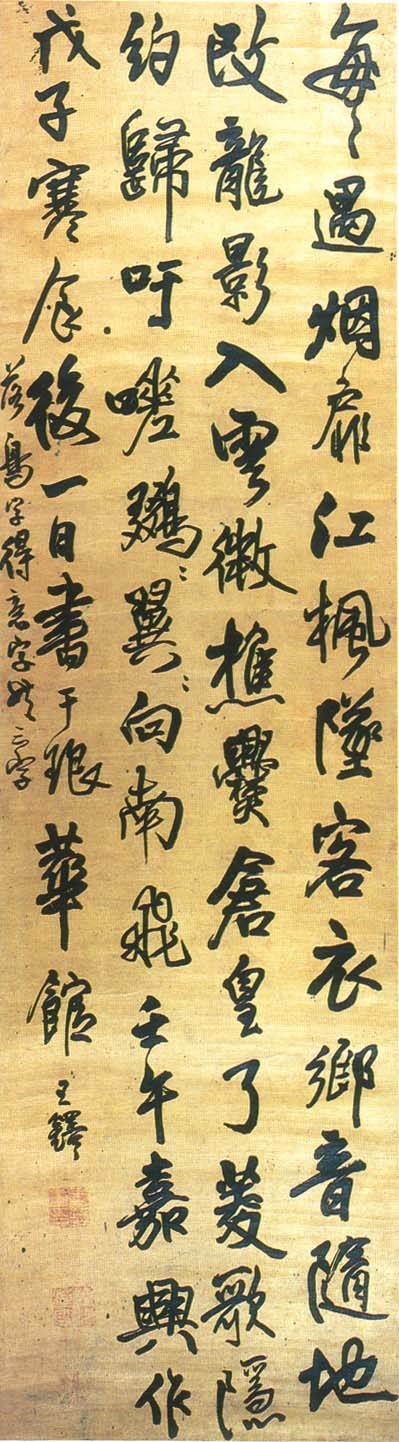 每〻遇烟扉江楓墜客衣鄉音隨地
改龍影入雲微樵爨倉皇了菱歌隱
約歸吁嗟〻翼〻向南飛壬午嘉興作
戊子寒食後一日書于琅華館王鐸
落字得意字字